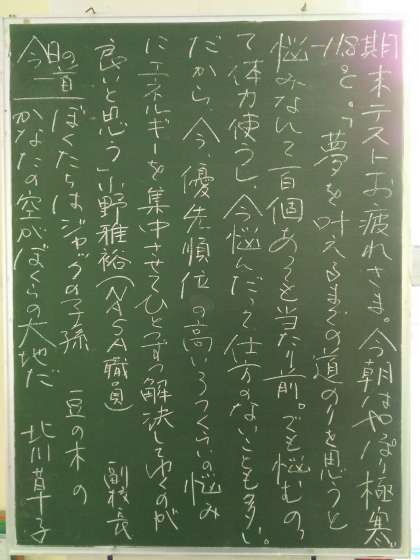 期末テストお疲れさま。今朝はやっぱり極寒
-11.8℃。「夢を叶えるまでの道のりを思うと
悩みなんて百個あって当たり前。でも悩むのっ
て体力使うし、今悩んだって仕方のないことも多い。
だから、今、優先順位の高いろつくらいの悩み
にエネルギーを集中させてひとつずつ解決してゆくのが
良いと思う」小野雅裕(NASA職員) 副校長
今日の一首 ぼくたちはジャックの子孫 豆の木の
かなたの空がぼくらの大地だ 北川草子